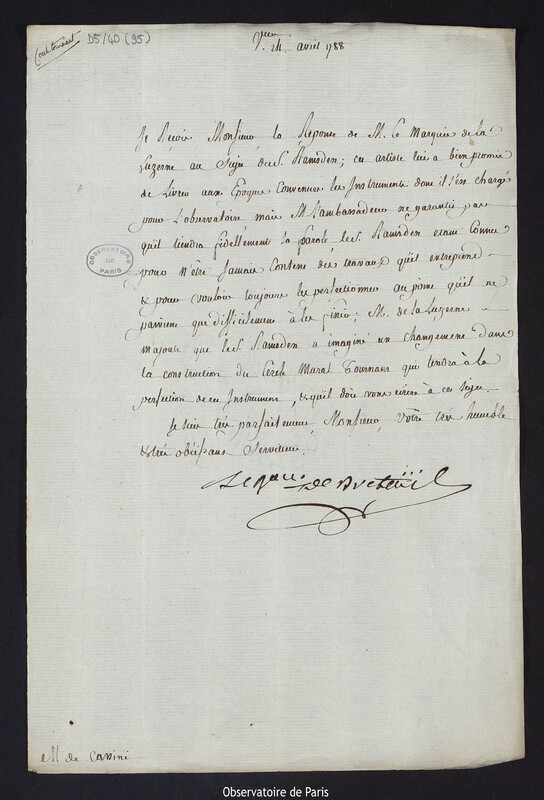 D5/40 (95)
24 avril 1788
Je Reçois Monsieur la Reponse de M. le Marquis de la
Luzerne au Sujet du S. Ramsden; cet artiste lui a bien promis
de Livrer aux Epoques Convenues les Instruments dont il s'est chargé
pour L'observatoire mais M. L'ambassadeur ne garantit pas
qu'il tiendra fidellement sa parole, le S. Ramsden etant Connu
pour N'être Jamais Content des travaux qu'il entreprend
& pour vouloir toujours les perfectionner au point qu'il ne
parvient que difficilement à les finir; M. de la Luzerne
majoute que le S. Ramsden a imaginé un changement dans
la construction du Cercle Mural Tournant qui tendra à la
perfection de cet Instrument, & qu'il doit vous écrire à ce Sujet.
Je suis très parfaitement, Monsieur, votre très humble
& très obéissant Serviteur.
Le Bon de Breteüil
OBSERVATOIRE
DE
PARIS
M. de Cassini
Observatoire de Paris